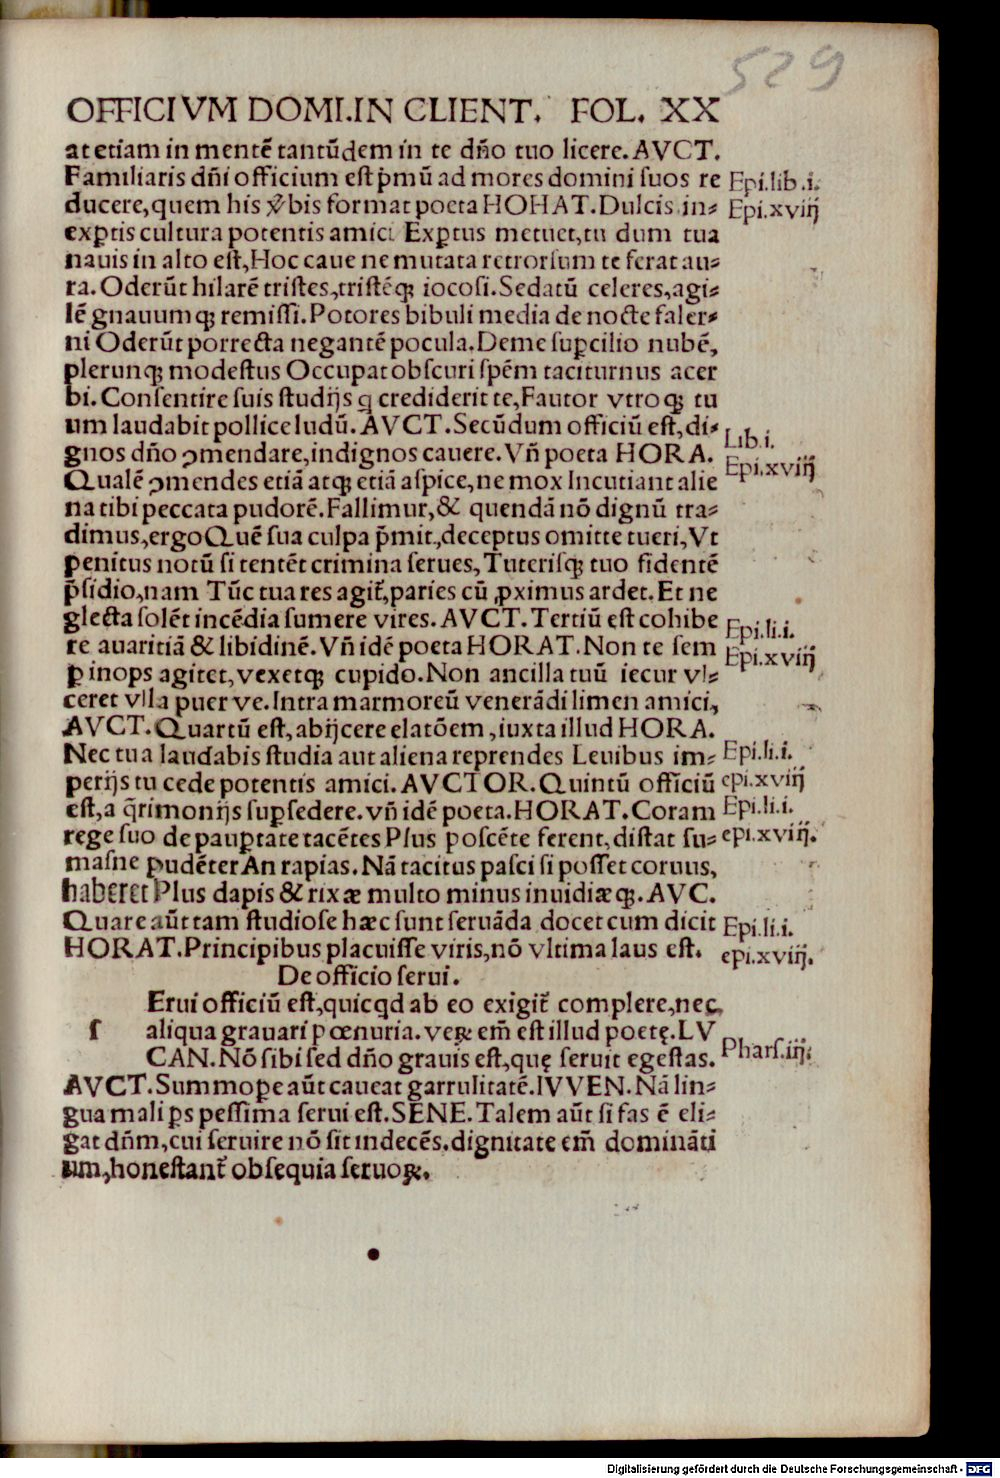 529
OFFICIVM DOMI.IN CLIENT. FOL. XX
at etiam in mentē tantūdem in te dño tuo licere. AVCT.
Familiaris dñi officium est p̄mū ad mores domini suos re
Epi.lib.i.
ducere, quem his v̱bis format poeta HOHAT. Dulcis in⸗
Epi.xviij
exꝑtis cultura potentis amici Exꝑtus metuet, tu dum tua
nauis in alto est, Hoc caue ne mutata retrorsum te ferat au⸗
ra. Oderūt hilarē tristes, tristēqꝫ iocosi. Sedatū celeres, agi⸗
lē gnauumqꝫ remissi. Potores bibuli media de nocte faler⸗
ni Oderūt porrecta negantē pocula. Deme suꝑcilio nubē,
plerunqꝫ modestus Occupat obscuri spēm taciturnus acer
bi. Consentire suis studijs q crediderit te, Fautor vtroqꝫ tu
um laudabit pollice ludū. AVCT. Secūdum officiū est, di⸗
Lib.i.
gnos dño ꝯmendare, indignos cauere. Vñ poeta HORA.
Epi.xviij
Qualē ꝯmendes etiā atqꝫ etiā aspice, ne mox Incutiant alie
na tibi peccata pudorē. Fallimur, & quendā nō dignū tra⸗
dimus, ergo Quē sua culpa p̄mit, deceptus omitte tueri, Vt
penitus notū si tentēt crimina serues, Tuterisqꝫ tuo fidentē
p̄sidio, nam Tūc tua res agit᷑, paries cū ꝓximus ardet. Et ne
glecta solēt incēdia sumere vires. AVCT. Tertiū est cohibe
Epi.li.i.
re auaritiā & libidinē. Vñ idē poeta HORAT. Non te sem
Epi.xviij
ꝑ inops agitet, vexetqꝫ cupido. Non ancilla tuū iecur vl⸗
ceret vlla puer ve. Intra marmoreū venerādi limen amici,
AVCT. Quartū est, abijcere elatōem, iuxta illud HORA.
Nec tua laudabis studia aut aliena reprendes Leuibus im⸗
Epi.li.i.
perijs tu cede potentis amici. AVCTOR. Quintū officiū
epi.xviij
est, a q̄rimonijs suꝑsedere. vñ idē poeta. HORAT. Coram
Epi.li.i.
rege suo de pauꝑtate tacētes Plus poscēte ferent, distat su⸗
epi.xviij.
masne pudēter An rapias. Nā tacitus pasci si posset coruus,
haberet Plus dapis & rixæ multo minus inuidiæqꝫ. AVC.
Quare aūt tam studiose hæc sunt seruāda docet cum dicit
Epi.li.i.
HORAT. Principibus placuisse viris, nō vltima laus est.
epi.xviij.
De officio serui.
ſ
Erui officiū est, quicqd ab eo exigit᷑ complere, nec
aliqua grauari pœnuria. veꝝ em̄ est illud poetę. LV
CAN. Nō sibi sed dño grauis est, quę seruit egestas.
Phars.iij.
AVCT. Summoꝑe aūt caueat garrulitatē. IVVEN. Nā lin⸗
gua mali ꝑs pessima serui est. SENE. Talem aūt si fas ē eli⸗
gat dñm, cui seruire nō sit indecēs. dignitate em̄ domināti
um, honestant᷑ obsequia seruoꝝ.
Digitalisierung gefördert durch die Deutsche Forschungsgemeinschaft - DFG